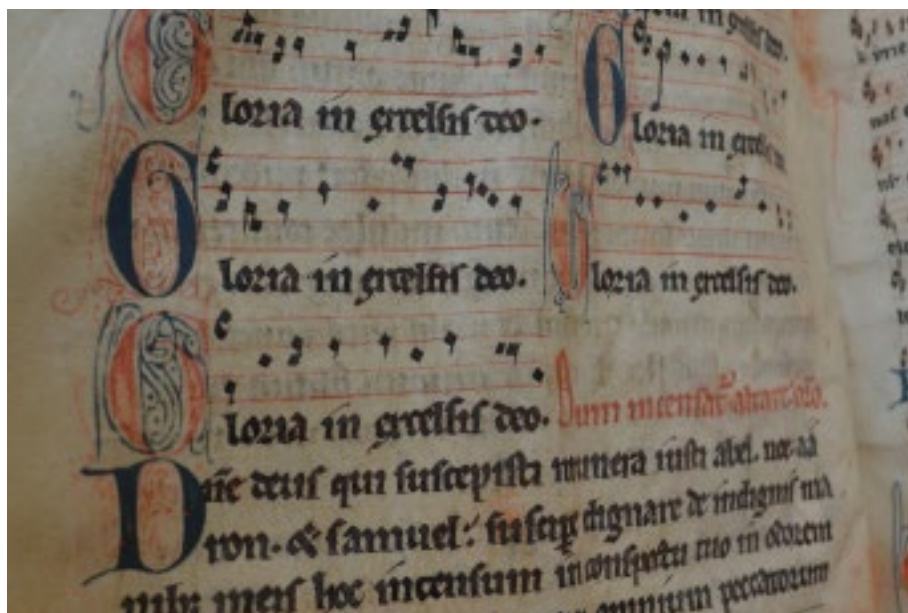 Gloria in excelsis deo.
Gloria in excelsis deo.
Gloria in excelsis deo.
in excelsis deo.
Gloria in excelsis
Gloria in excelsis deo.
Dum incensat altare oro.
Dne deus qui suscepisti munera iusti abel. nec aa
ron. & samuel: suscipe dignare de indignis ma
nibus meis hoc incensum in conspectu tuo in odorem
omnium peccatorum